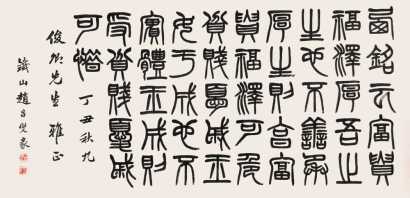 西銘云富貴
福澤厚吾之
生也不
厚生則言富
貴福澤可
貧賤憂戚玉
女于成也不
實體玉成則
受貧賤憂戚
可 丁丑秋九
俊 先生 雅正
鐵山趙昌燮篆